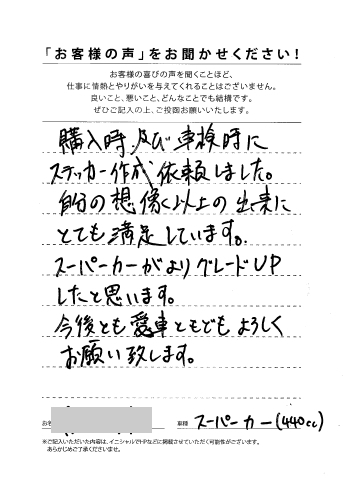 「お客様の声」をお聞かせください！
お客様の喜びの声を聞くことほど、
仕事に情熱とやりがいを与えてくれることはございません。
良いこと、悪いこと、どんなことでも結構です。
ぜひご記入の上、ご投函お願いいたします。
購入時、及び車検時に
ステッカー作成依頼しました。
自分の想像以上の出来に
とても満足しています。
スーパーカーがよりグレードUP
したと思います。
今後とも愛車ともどもよろしく
お願い致します。
お名
車種 スーパーカー(440cc)
※ご記入いただいた内容は、イニシャルでHPなどに掲載させていただく可能性がございます。
あらかじめご了承くださいませ。